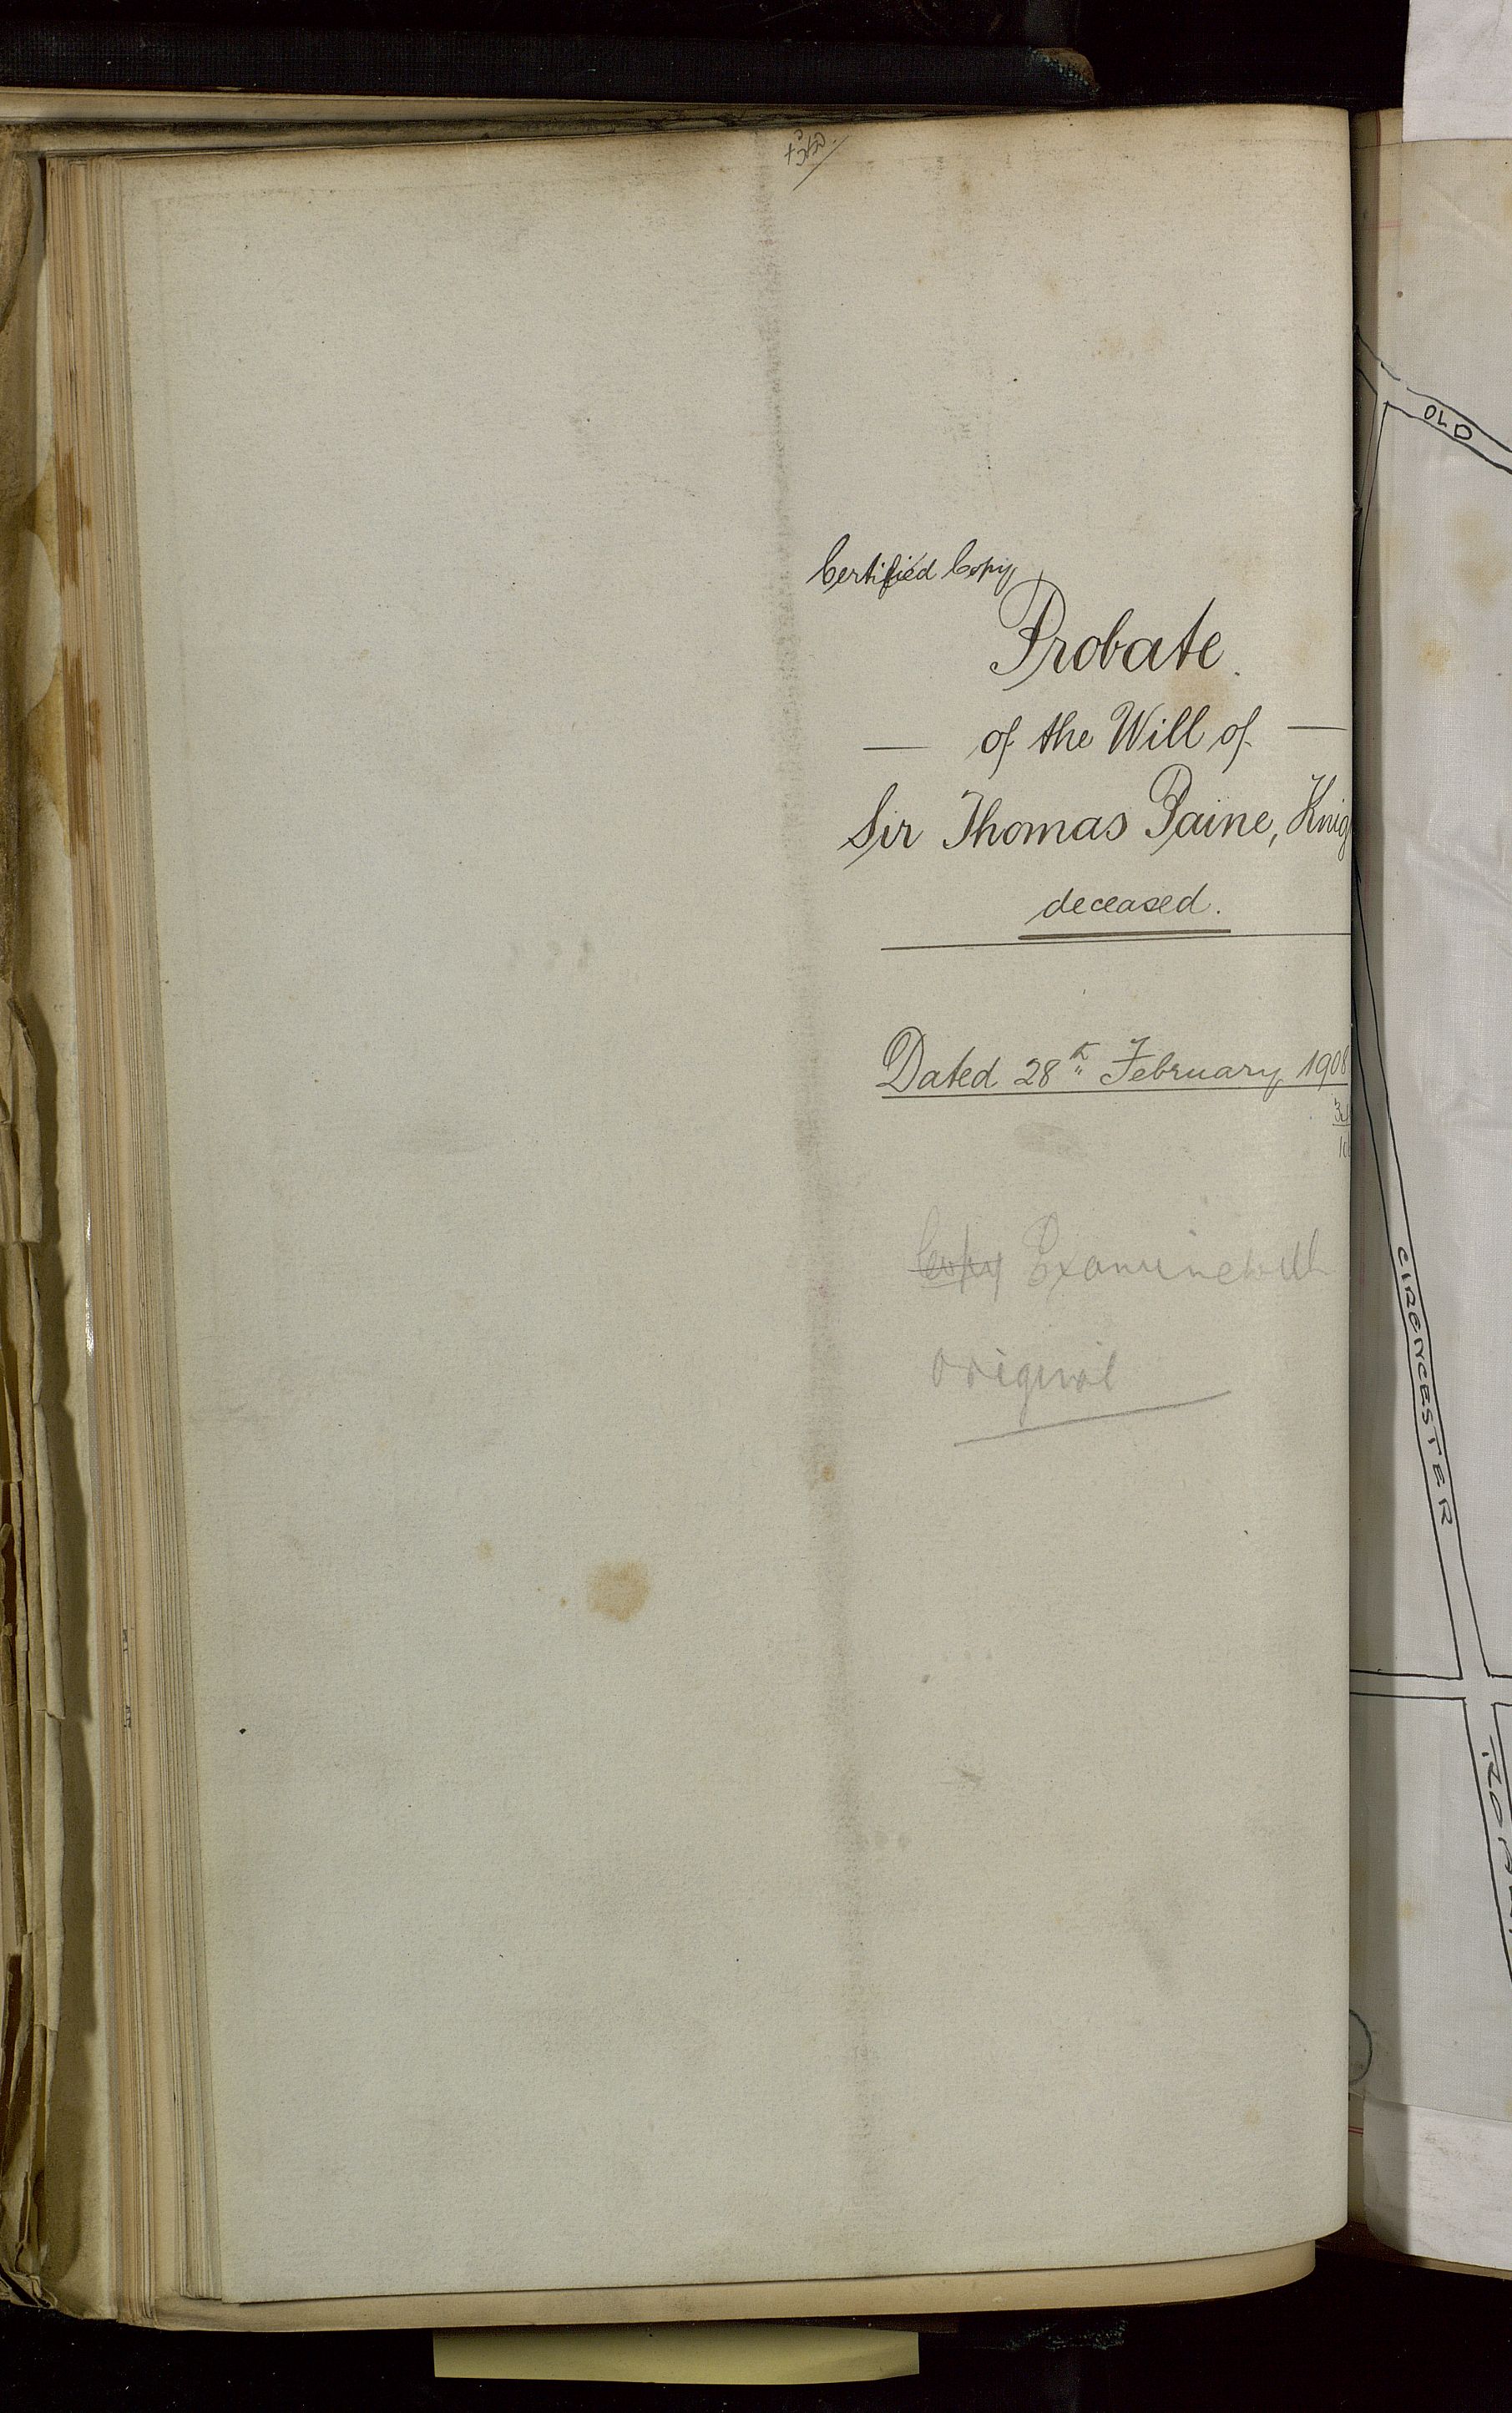 Certified Copy
Probate
— of the Will of —
Sir Thomas Paine, Knig
deceased.
Dated 28th February 1908
Copy Examine with
original
OLD
CIRENCESTER